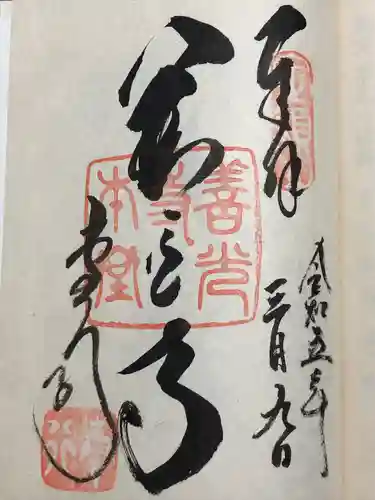 奉拝
令和五年
三月九日
善光寺
善光
寺
本堂